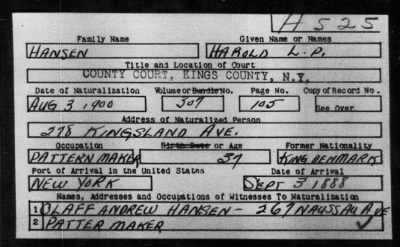 H 525
Family Name Given Name or Names
HANSEN HAROLD L. P.
Title and Location of Court
COUNTY COURT, KINGS COUNTY, N.Y.
Date of Naturalization Volume or Bundle No. Page No. Copy of Record No.
AUG 3, 1900 307 105 See Over
Address of Naturalized Person
278 KINGSLAND AVE.
Occupation Birth Date or Age Former Nationality
PATTERN MAKER 37 KING DENMARK
Port of Arrival in the United States Date of Arrival
NEW YORK SEPT 3 1888
Names, Addresses and Occupations of Witnesses To Naturalization
1 OLAFF ANDREW HANSEN - 267 NAUSSAU AVE
2 PATTER MAKER